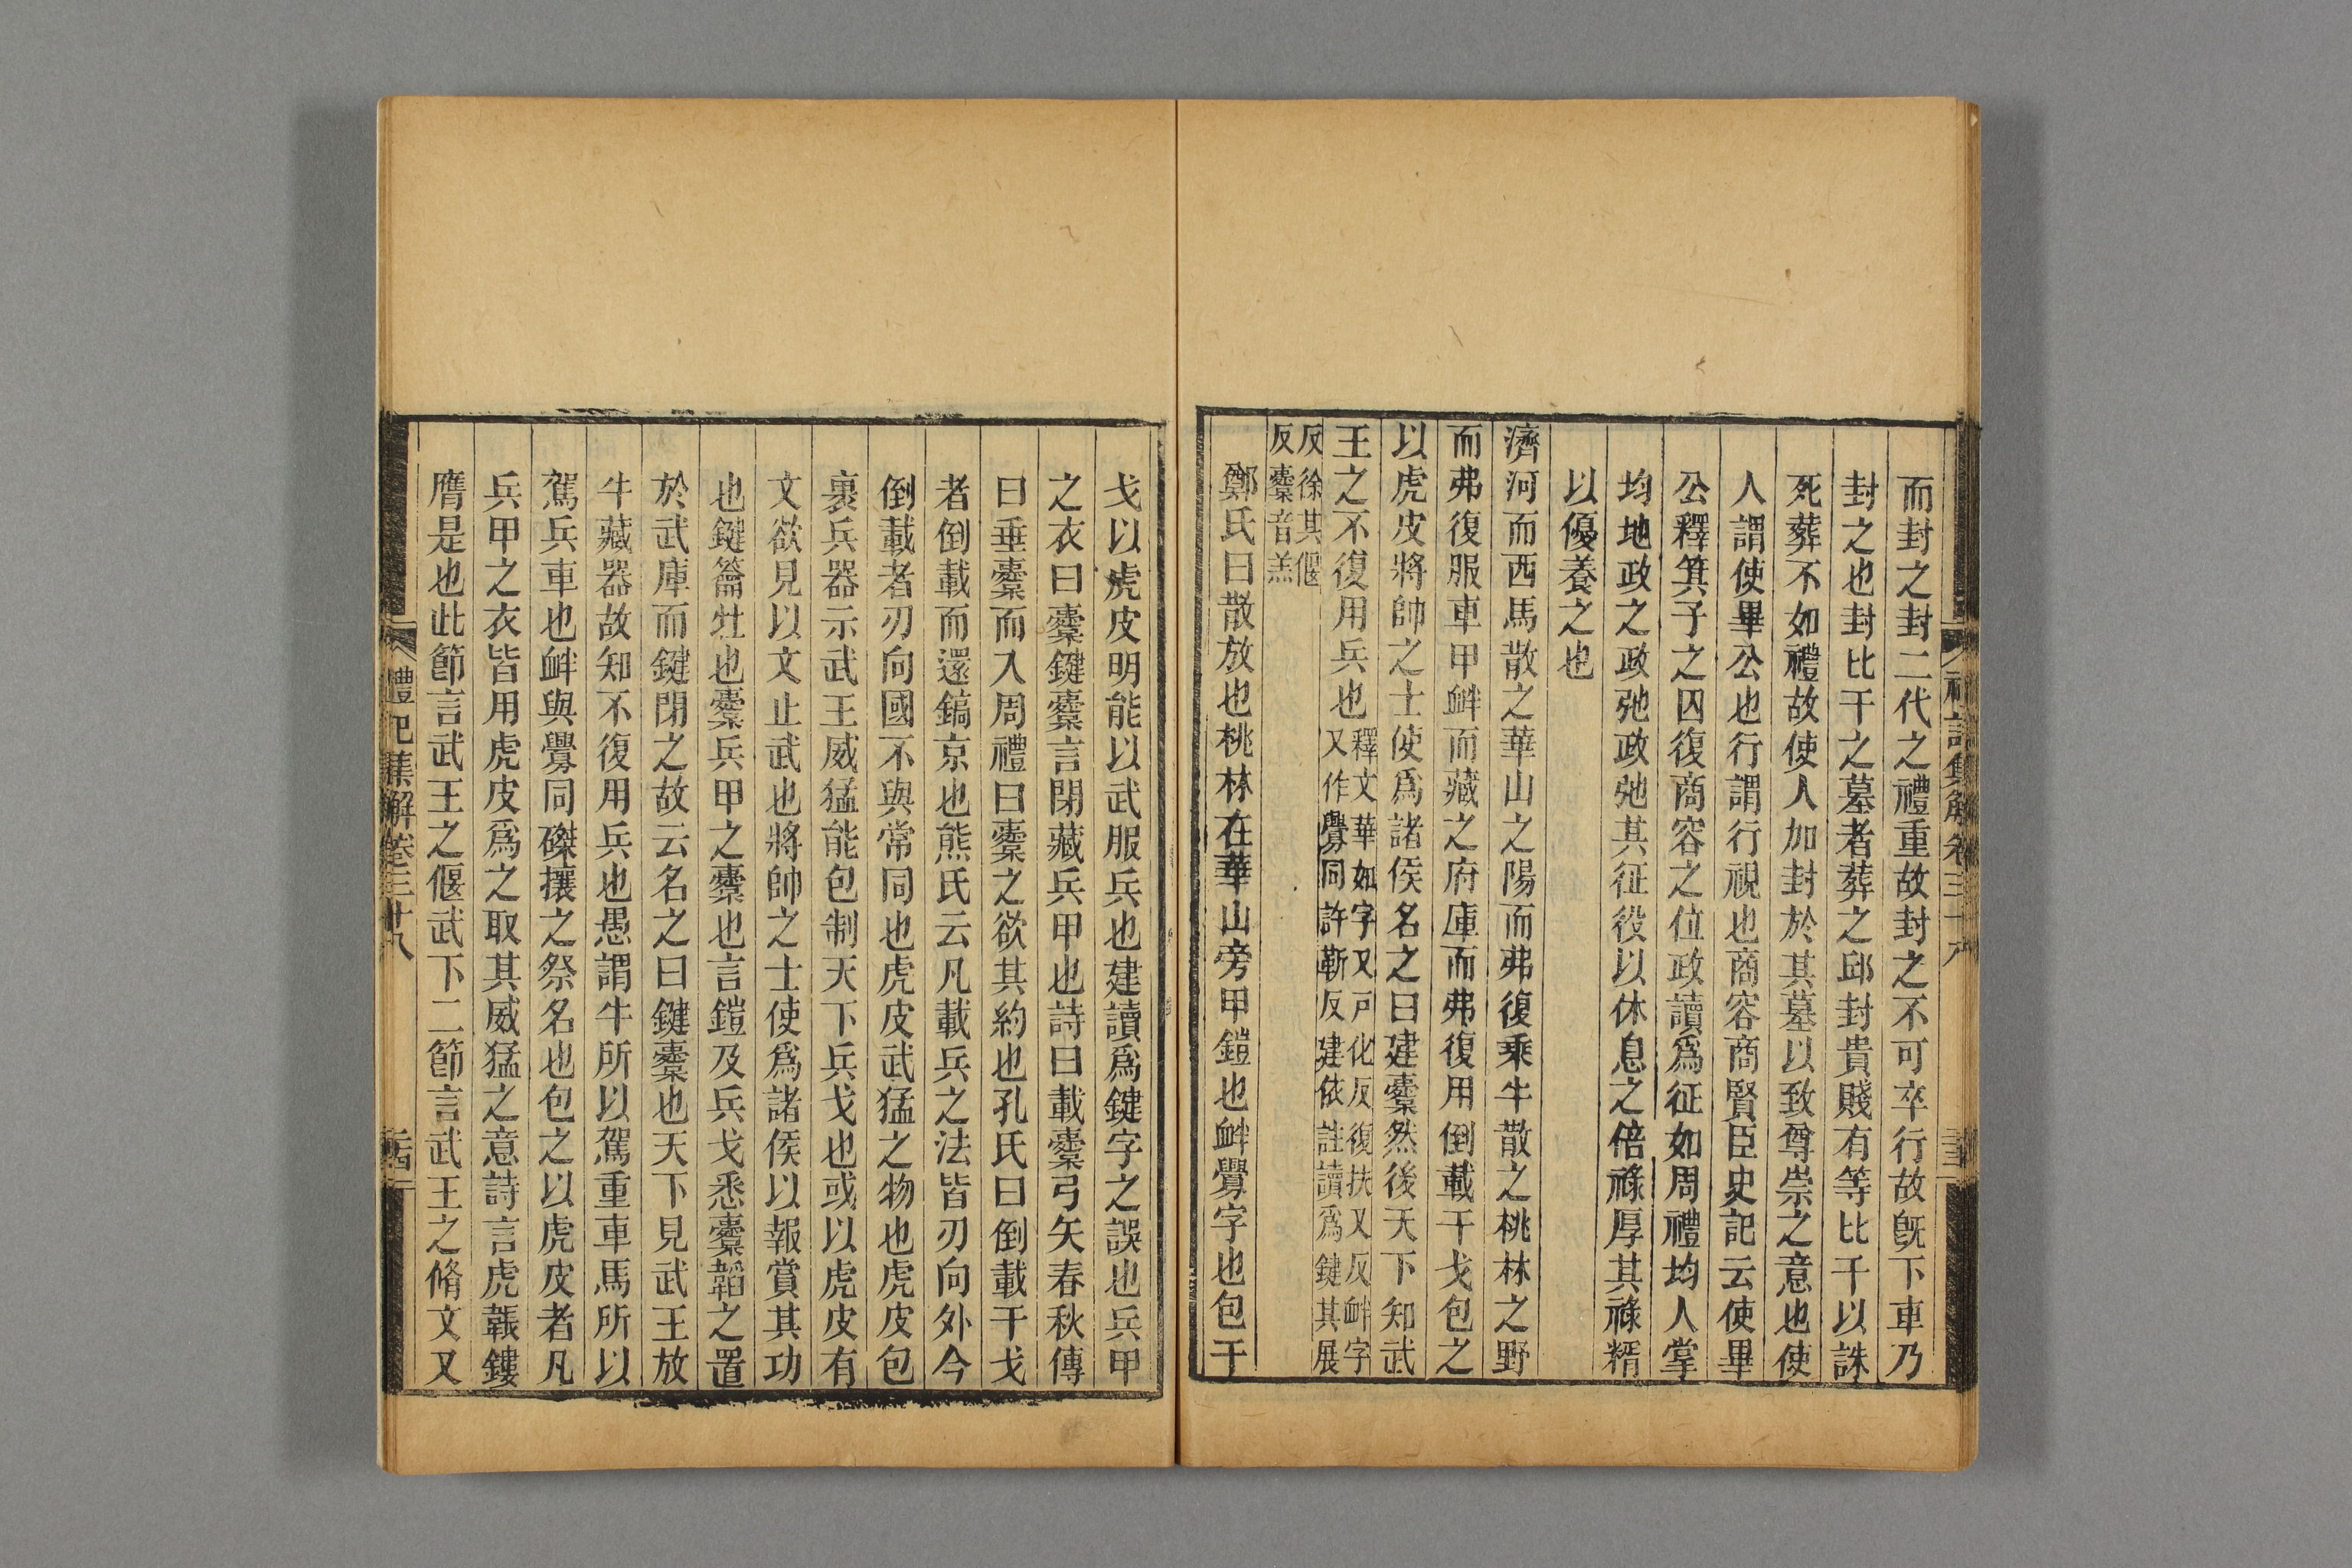 而封之封二代之禮重故封之不可卒行故既下車乃
封之也封比干之墓者葬之邱封貴賤有等比干以誅
死葬不如禮故使人加封於其墓以致尊崇之意也使
人謂使畢公也行謂行視也商容商賢臣史記云使畢
公釋箕子之囚復商容之位政讀爲征如周禮均人掌
均地政之政弛政弛其征役以休息之倍祿厚其祿糈
以優養之也
濟河而西馬散之華山之陽而弗復乘牛散之桃林之野
而弗復服車甲衅而藏之府庫而弗復用倒載干戈包之
以虎皮將帥之士使爲諸侯名之曰建櫜然後天下知武
王之不復用兵也
釋文華如字又戸化反復扶又反衅字
又作釁同許靳反建依註讀爲鍵其展
反徐其偃
反櫜音羔
鄭氏曰散放也桃林在華山旁甲鎧也衅釁字也包干
戈以虎皮明能以武服兵也建讀爲鍵字之誤也兵甲
之衣曰櫜鍵櫜言閉藏兵甲也詩曰載櫜弓矢春秋傳
曰垂櫜而入周禮曰櫜之欲其約也孔氏曰倒載干戈
者倒載而還鎬京也熊氏云凡載兵之法皆刃向外今
倒載者刃向國不與常同也虎皮武猛之物也虎皮包
裹兵器示武王威猛能包制天下兵戈也或以虎皮有
文欲見以文止武也將帥之士使爲諸侯以報賞其功
也鍵籥牡也櫜兵甲之櫜也言鎧及兵戈悉櫜韜之置
於武庫而鍵閉之故云名之曰鍵櫜也天下見武王放
牛藏器故知不復用兵也愚謂牛所以駕重車馬所以
駕兵車也衅與釁同磔攘之祭名也包之以虎皮者凡
兵甲之衣皆用虎皮爲之取其威猛之意詩言虎韔鏤
膺是也此節言武王之偃武下二節言武王之脩文又
禮記集解卷三十八